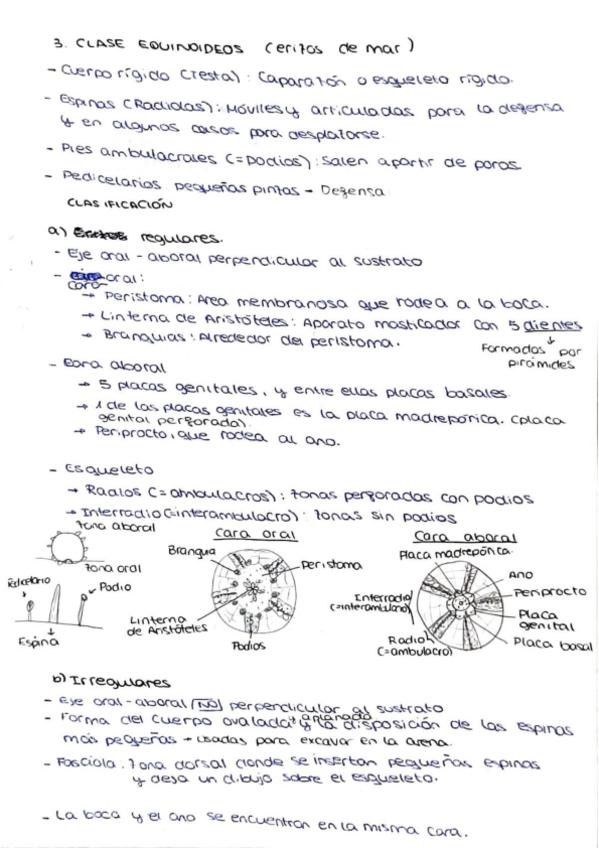 3. CLASE EQUINOIDEOS (erizos de mar)
- Cuerpo rígido (Testa): Caparazón o esqueleto rígido.
- Espinas (Radiolas): Móviles y articuladas para la defensa
y en algunos casos para desplazarse.
- Pies ambulacrales (=podios): Salen a partir de poros
- Pedicelarios pequeñas pinzas → Defensa
CLASIFICACIÓN
a) regulares.
- Eje oral-aboral perpendicular al sustrato
- cara oral:
→ Peristoma: Área membranosa que rodea a la boca.
→ Linterna de Aristóteles: Aparato masticador con 5 dientes
↓
Formados por
pirámides
→ Branquias: Alrededor del peristoma.
- Cara aboral
→ 5 placas genitales, y entre ellas placas basales
→ 1 de las placas genitales es la placa madrepórica. (placa
genital perforada).
→ Periprocto, que rodea al ano.
- Esqueleto
→ Radios (=ambulacros): zonas perforadas con podios
→ Interradio (=interambulacro): zonas sin podios
zona aboral
zona oral
Pedicelario
Podio
Espina
Cara oral
Branquia
Peristoma
Linterna
de Aristóteles
Podios
Cara aboral
Placa madrepórica
Ano
Periprocto
Placa
genital
Placa basal
Interradio
(=interambulacro)
Radio
(=ambulacro)
b) Irregulares
- Eje oral-aboral NO perpendicular al sustrato
- Forma del cuerpo ovalada y aplanada y la disposición de las espinas
más pequeñas → usadas para excavar en la arena.
- Fasciola. Zona dorsal donde se insertan pequeñas espinas
y deja un dibujo sobre el esqueleto.
- La boca y el ano se encuentran en la misma cara.